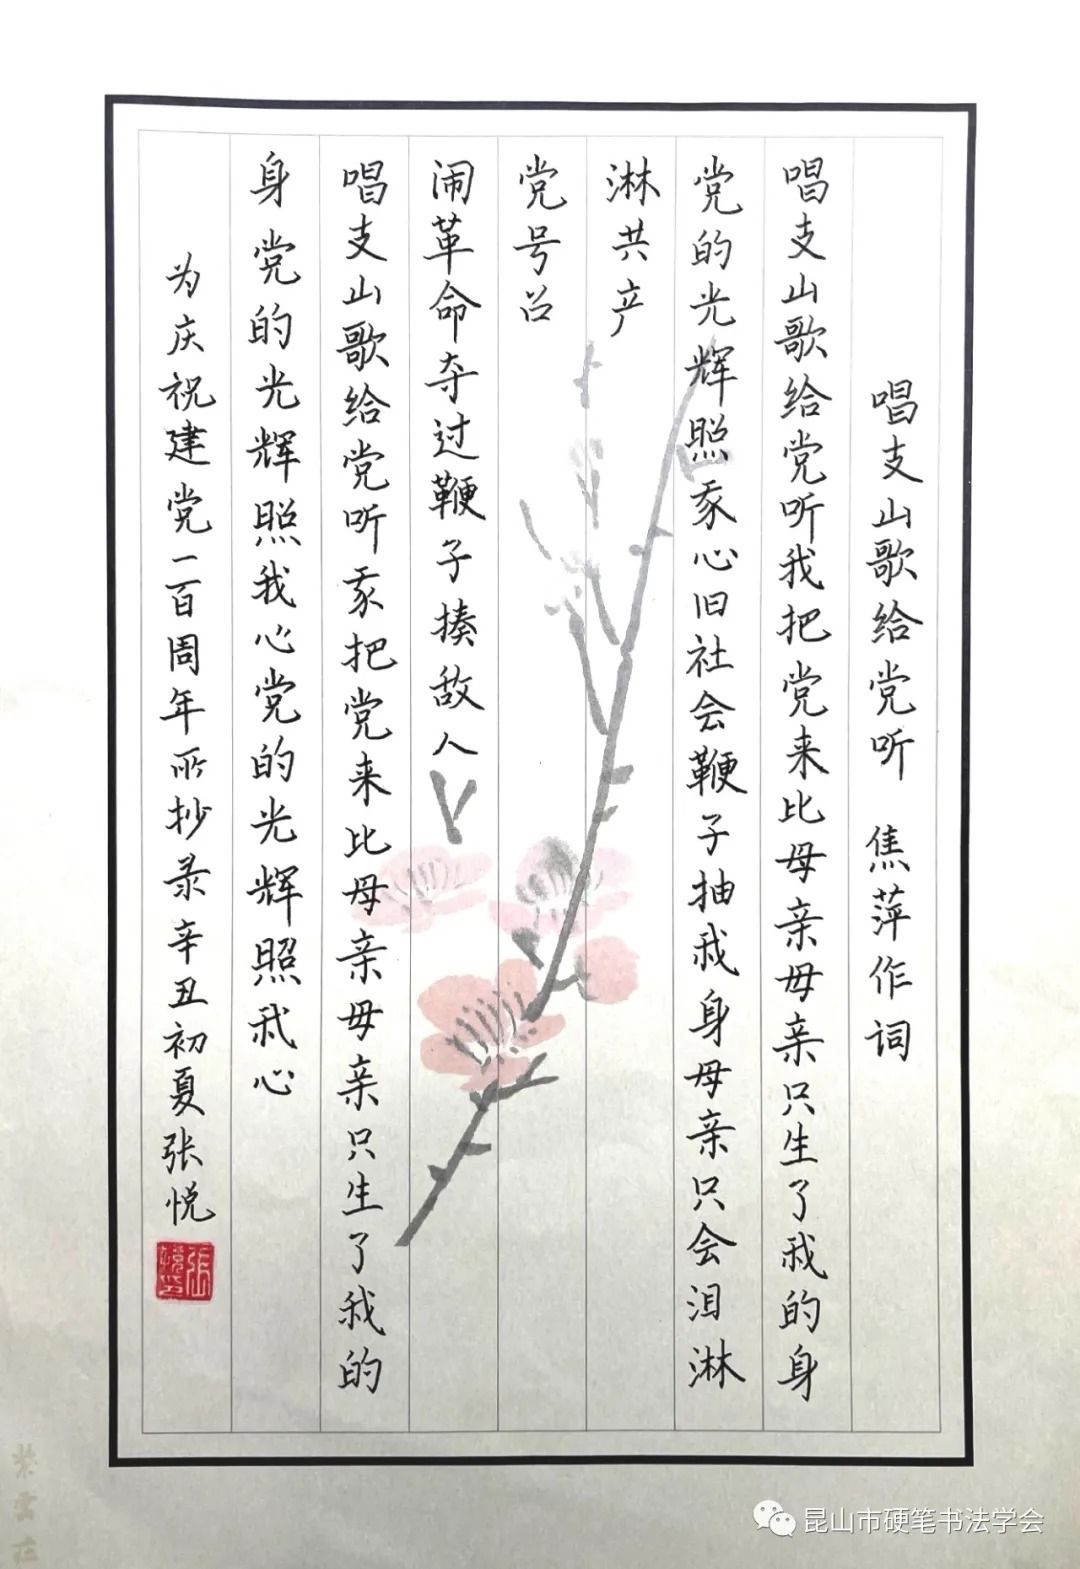 唱支山歌给党听 焦萍作词
唱支山歌给党听我把党来比母亲母亲只生了我的身
党的光辉照我心旧社会鞭子抽我身母亲只会泪淋
淋共产
党号召
闹革命夺过鞭子揍敌人
唱支山歌给党听我把党来比母亲母亲只生了我的
身党的光辉照我心党的光辉照我心
为庆祝建党一百周年所抄录辛丑初夏张悦
昆山市硬笔书法学会